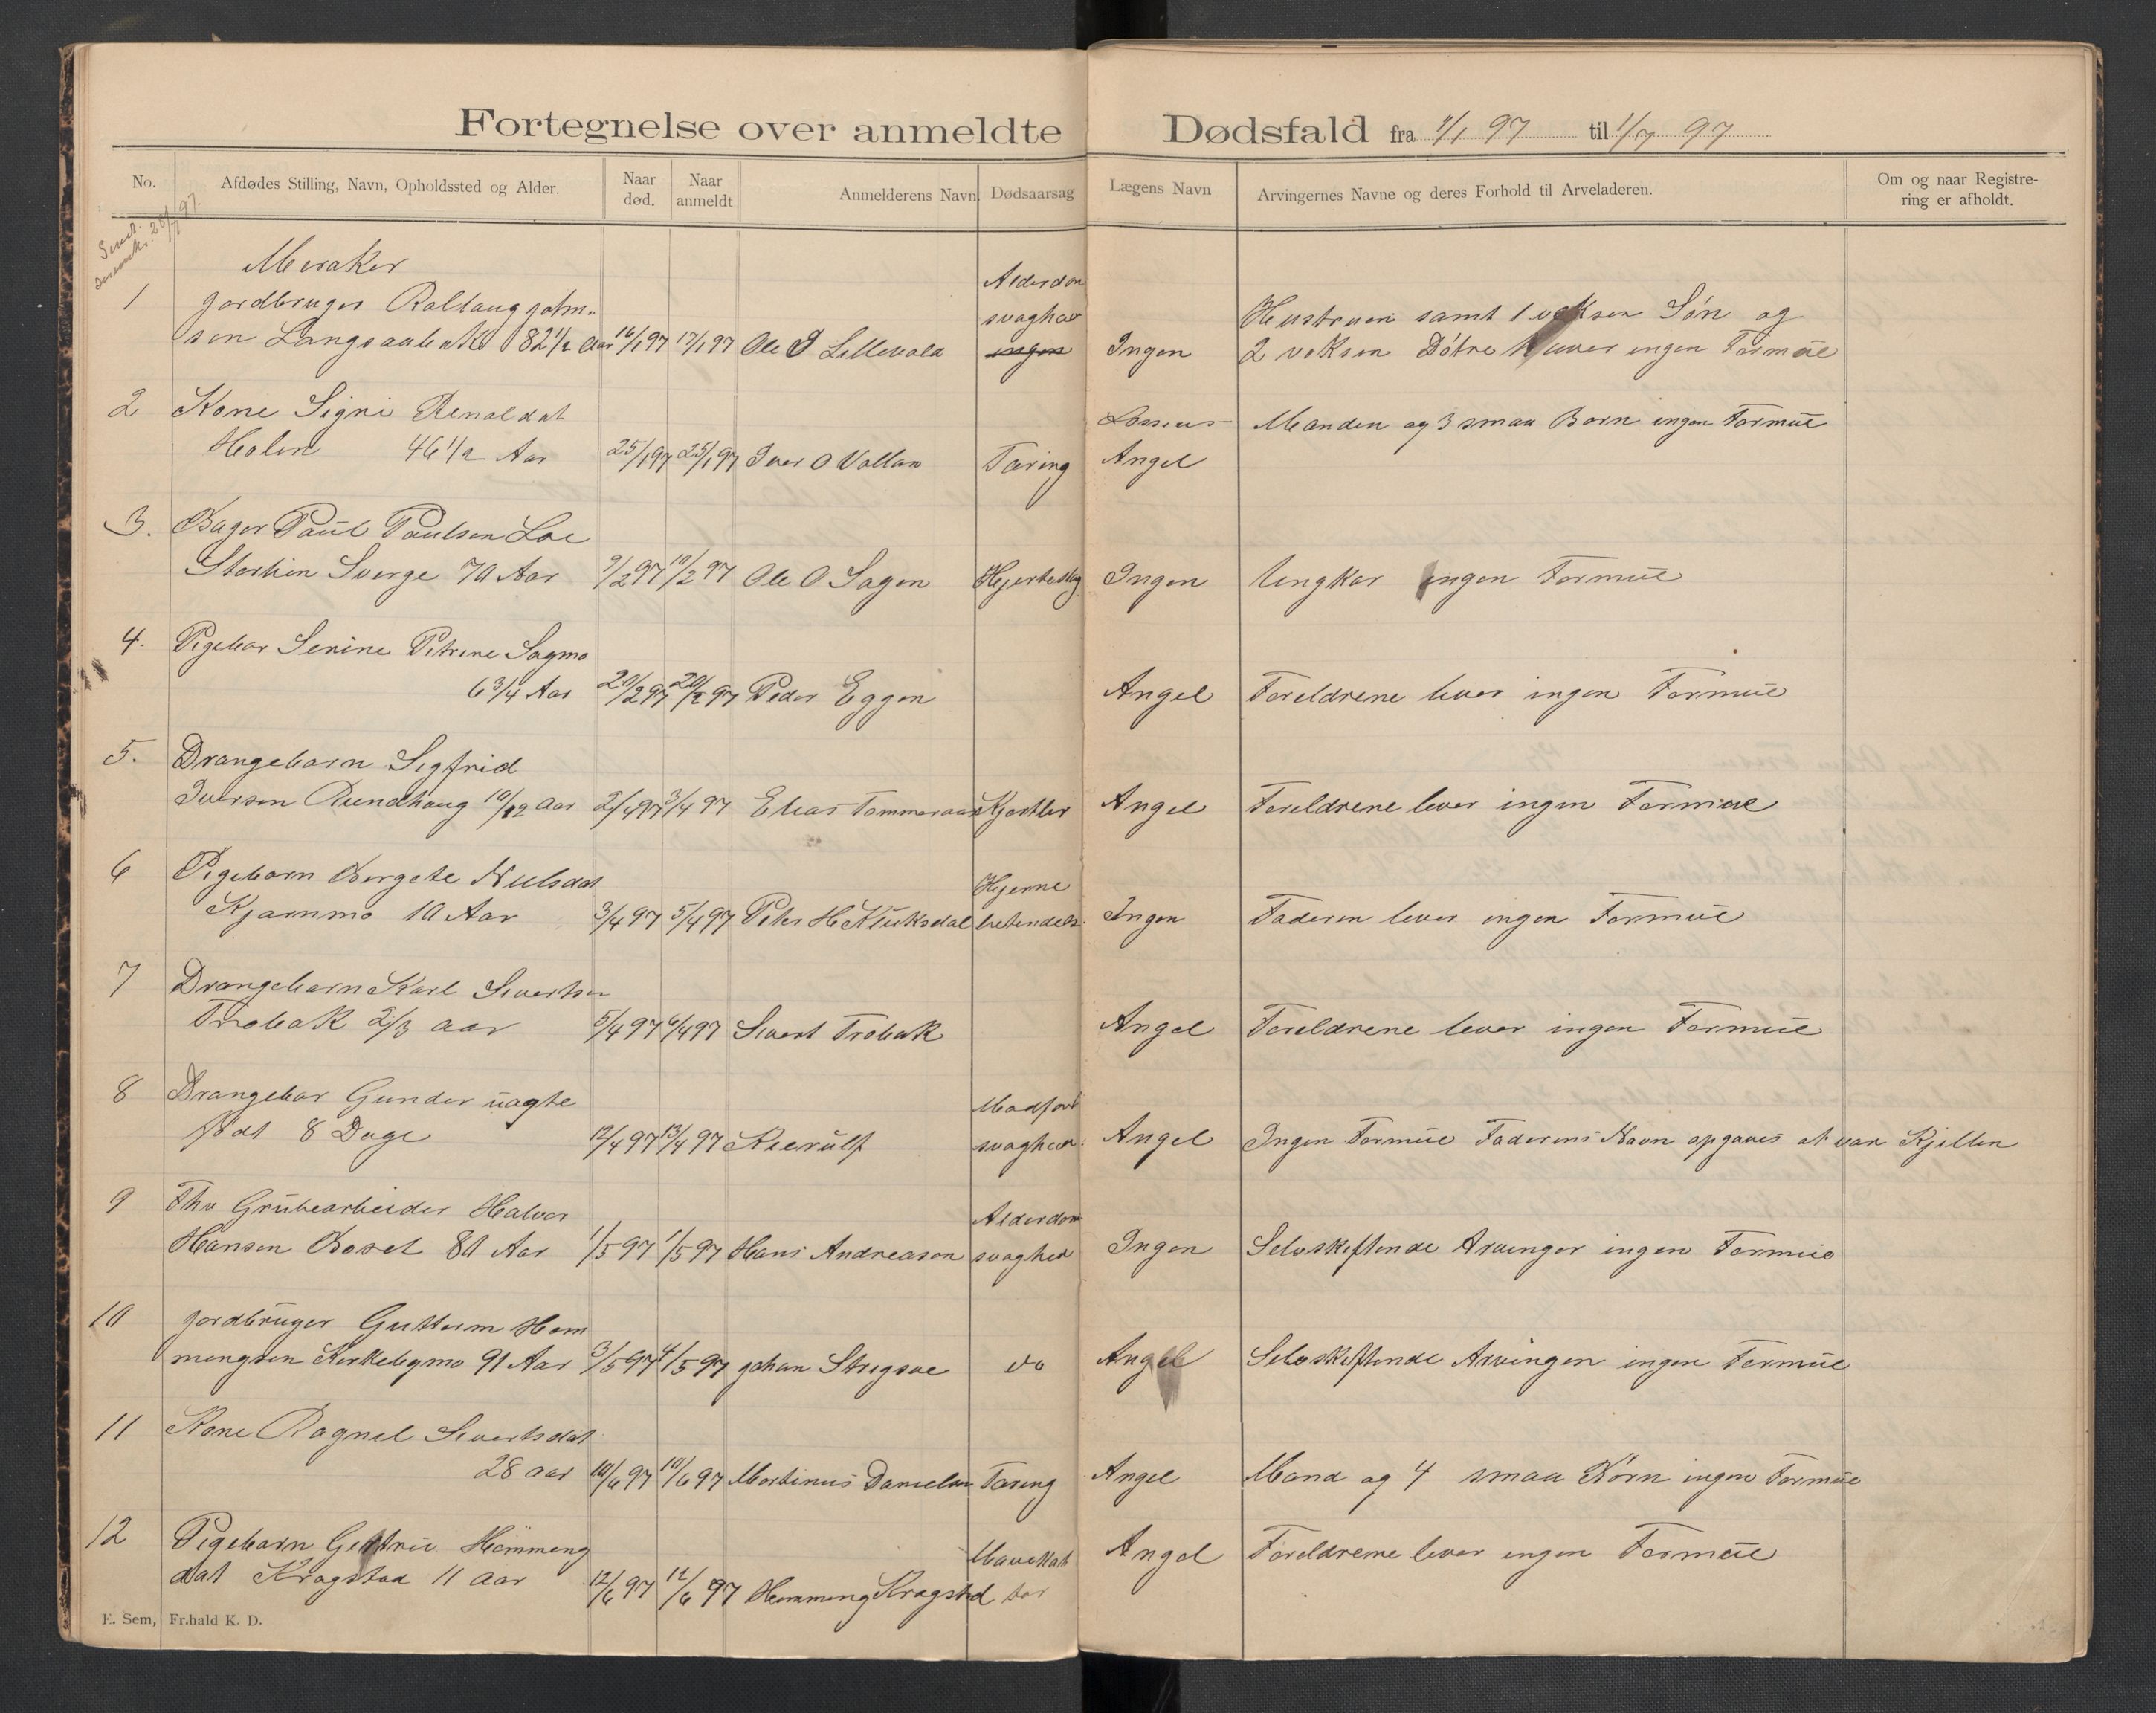 Fortegnelse over anmeldte Dødsfald fra 1/1 97 til 1/7 97
No. Afdødes Stilling, Navn, Opholdssted og Alder. Naar død. Naar anmeldt Anmelderens Navn. Dødsaarsag Lægens Navn Arvingernes Navne og deres Forhold til Arveladeren. Om og naar Registrering er afholdt.
Meraker
1 Jordbruger Rollaug John- Alderdom
svaghed Hustruen samt 1 voksen Søn og
sen Langsaabak 82 1/2 Aar 16/1 97 17/1 97 Ole J Lillevold ingen Ingen 2 voksen Døtre lever ingen Formue
2 Kone Signi Renoldat Manden og 3 smaa Born ingen Formue
Holen 46 1/2 Aar 25/1 97 25/1 97 Iver O Vollan Tæring Angel
3. Bager Paul Paulsen Loe
Storlien Sverge 70 Aar 9/2 97 10/2 97 Ole O Sagen Hjerteslag Ingen Ungkar ingen Formue
4. Pigebar Serine Petrine Sagmo
6 3/4 Aar 20/2 97 20/2 97 Peder Eggen Angel Foreldrene lever ingen Formue
5. Drangebarn Sigfrid
Iversen Rundhaug 10/12 Aar 2/4 97 3/4 97 Elias Tommeraas Kjertler Angel Foreldrene lever ingen Formue
6 Pigebarn Bergete Nielsdat Hjerne
Kjarnmo 10 Aar 3/4 97 5/4 97 Peter H Kluksdal betendels. Ingen Faderen lever ingen Formue
7 Drangebarn Karl Sivertsen
Trobak 2/3 aar 5/4 97 6/4 97 Sivert Trobak Angel Foreldrene lever ingen Formue
8 Drangebar Gunder uagte Medfodt
født 8 Dage 12/4 97 13/4 97 Kierulf svaghed Angel Ingen Formue Faderens Navn opgaves at van Kjellin
9 Fhv Grubearbeider Halvor Alderdom
Hansen Boset 80 Aar 1/5 97 1/5 97 Hans Andreasen svaghed Ingen Selvskiftende Arvinger ingen Formue
10 Jordbruger Guttorm Hem
mingsen Kirkebymo 91 Aar 3/5 97 4/5 97 Johan Stregsve do Angel Selvskiftende Arvingen ingen Formue
11 Kone Ragnel Sivertsdat
28 aar 10/6 97 10/6 97 Martinus Danielsen Tæring Angel Mand og 4 smaa Børn ingen Formue
12 Pigebarn Gertrue Hemmeng Mavekat Angel Foreldrene lever ingen Formue
dat Kragstad 11 aar 12/6 97 12/6 97 Hemming Kragstad tar
E. Sem, Fr.hald K. D.